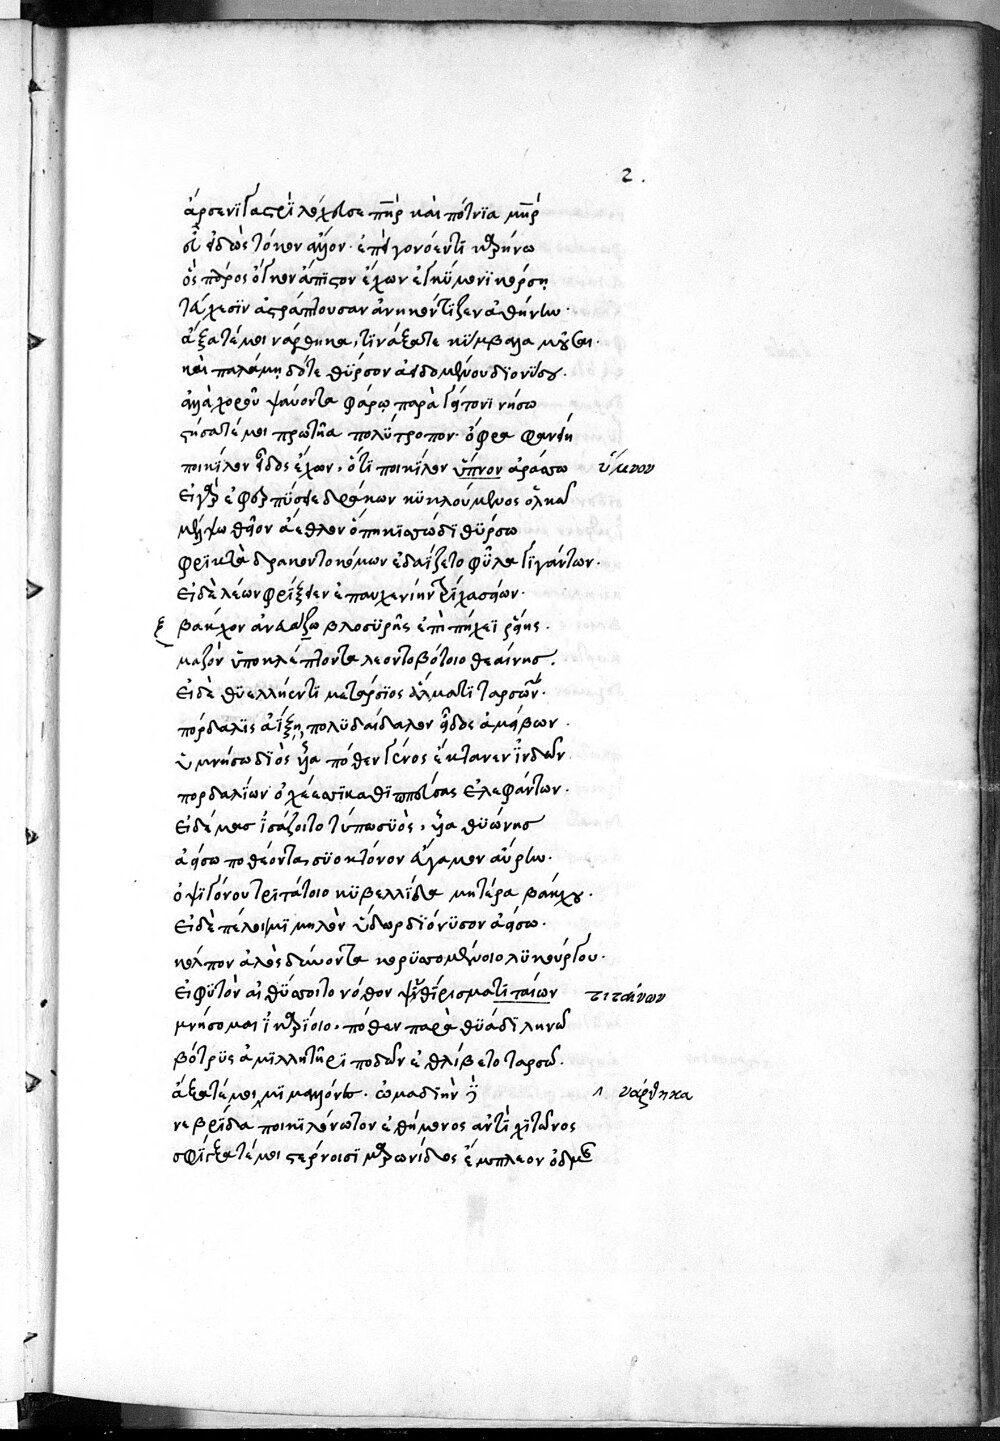 2.
ἄρσενϊ γαςρὶ λόχευσε πη̄ρ καὶ πότνϊα μη̄ρ
εὖ εἰδὼς τόκον ἄλλον· ἐπεὶ γονόεντι καρήνω
ὃς πάρος ὄγκον ἄπιςον ἔχων ἐγκύμονϊ κόρση
τεύχεσϊν ἀςράπτουσαν ἀνηκόντιζεν ἀθήνην·
ἄξατέ μοι νάρθηκα, τϊνάξατε κύμβαλα μοῦσαι·
καὶ παλάμη δότε θύρσον ἀειδομένου διονύσου·
ἀλλὰ χοροῦ ψαύοντα φάρω παρὰ γείτονι νήσω
ςήσατέ μοι πρωτῆα πολύτροπον· ὄφρα φανείη
ποικίλον εἶδος ἔχων, ὅτϊ ποικίλον ὕπνον ἀράσσω ὕμνον
εἰ γὰρ ἐφερπύσειε δράκων κυκλούμενος ὁλκῶ
μέλψω θεῖον ἄεθλον ὅπη κισσώδϊ θύρσω
φρϊκτὰ δρακοντοκόμων ἐδαΐζετο φῦλα γϊγάντων·
εἰ δὲ λέων φρίξειεν ἐπαυχενίην τρίχα σείων·
βάκχον ἀνευάξω βλοσϋρῆς ἐπὶ πήχεϊ ῥείης·
μαζὸν ὑποκλέπτοντα λεοντοβότοιο θεαίνης.
εἰ δὲ θϋελλήεντι μετάρσϊος ἅλματι ταρσῶν·
πόρδαλϊς ἀΐξη, πολϋδαίδαλον εἶδος ἀμείβων·
ὑμνήσω δϊὸς υἷα πόθεν γένος ἔκτανεν ἰνδῶν
πορδαλίων ὀχέεσσϊ καθϊππεύσας ἐλεφάντων·
εἰ δέμας ἰσάζοιτο τύπω συὸς, υἷα θϋώνης
ἀείσω ποθέοντα, συοκτόνον εὔγαμον αὔρην·
ὀψϊγόνου τρϊτάτοιο κϋβελλίδα μητέρα βάκχου·
εἰ δὲ πέλοι μϊμηλὸν ὕδωρ δϊόνϋσον ἀείσω·
κόλπον ἁλὸς δύνοντα κορϋσσομένοιο λϋκούργου·
εἰ φϋτὸν αἰθύσσοιτο νόθον ψιθίρισμα τι παίων τιταίνων
μνήσομαι ἰκαρίοιο, πόθεν παρὰ θϋάδϊ ληνῶ
βότρϋς ἁμϊλλητῆρϊ ποδῶν ἐθλίβετο ταρσῶ·
ἄξατέ μοι μϊμαλλόνες· ὠμαδίην ^ νάρθηκα
νεβρίδα ποικϊλόνωτον ἐθήμονος ἀντὶ χιτῶνος
σφίγξατέ μοι ςέρνοισϊ μαρωνίδος ἔμπλεον ὀδμῆς